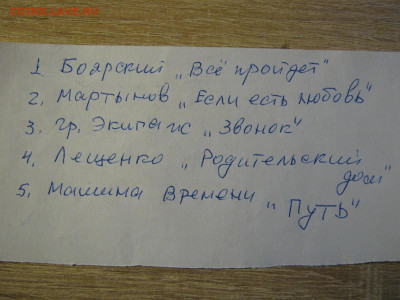 1 Боярский „Всё пройдет"
2. Мартынов „Если есть любовь"
3. гр. Экипаж „Звонок"
4. Лещенко „Родительский
дом"
5. Машина Времени „Путь"